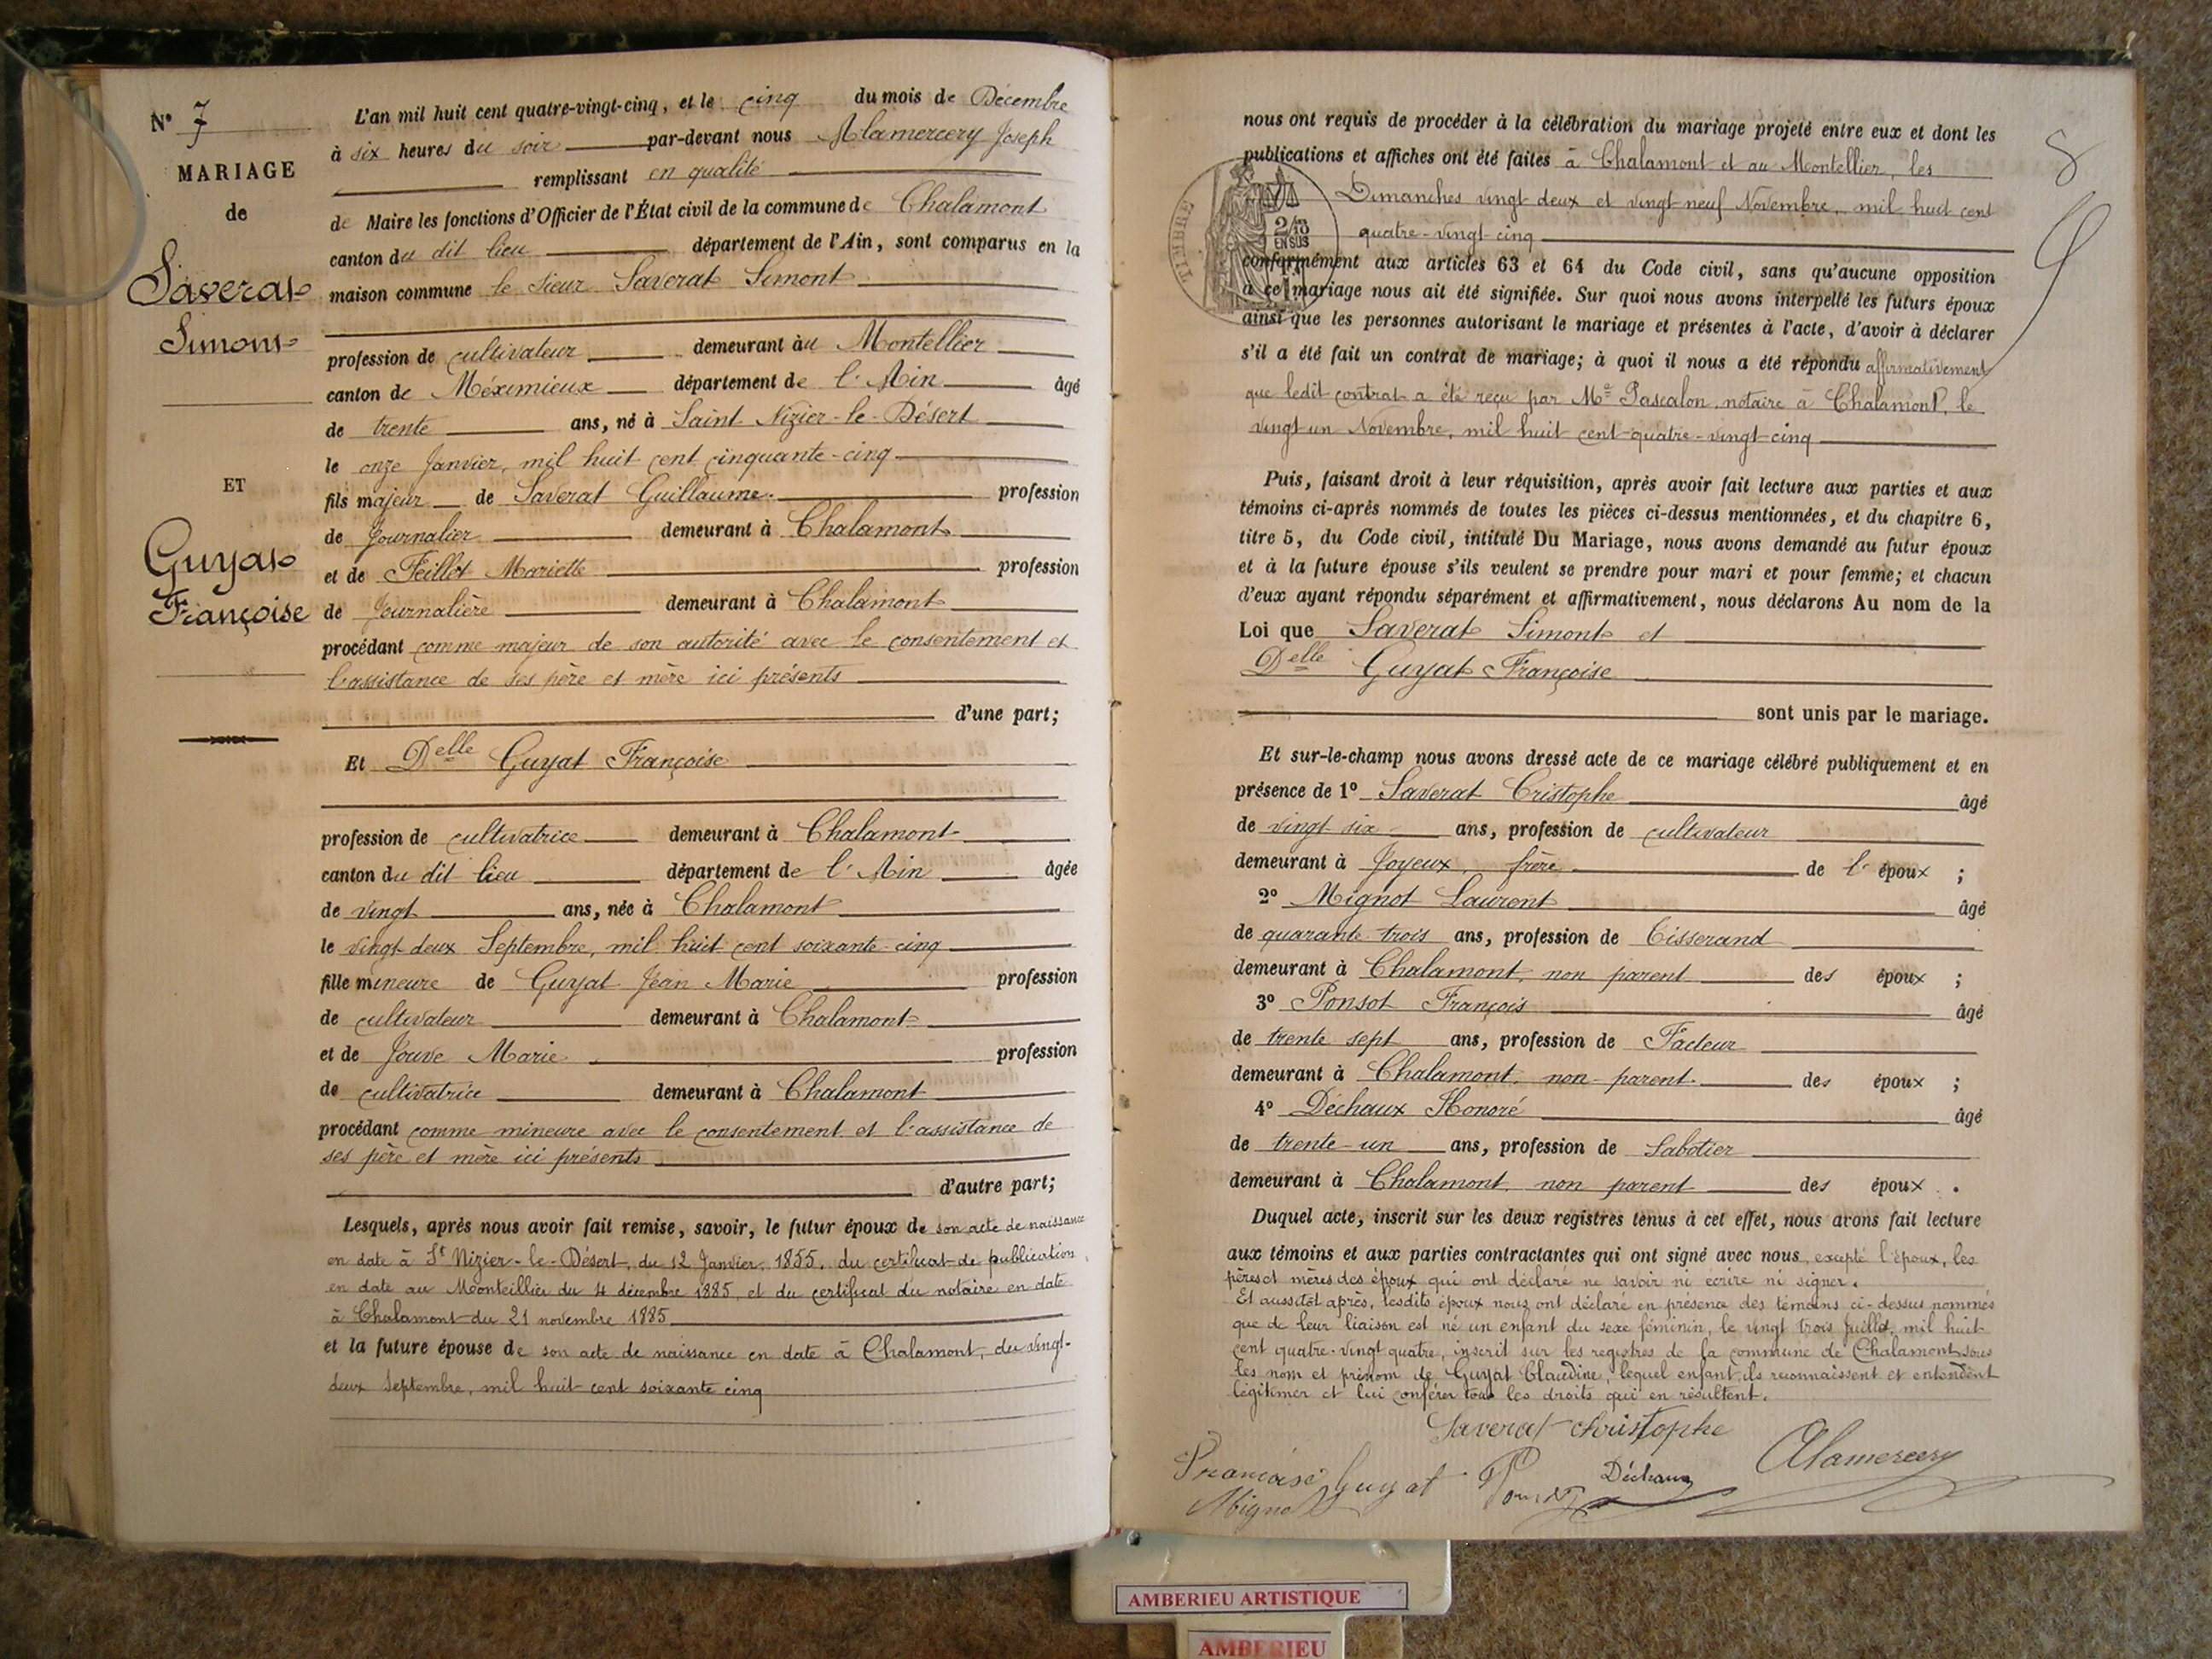 N° 7
MARIAGE
de
Saverat
Simont
ET
Guyat
Françoise
L'an mil huit cent quatre-vingt-cinq, et le cinq du mois de Décembre
à six heures du soir par-devant nous Alamercery Joseph
remplissant en qualité
de Maire les fonctions d'Officier de l'État civil de la commune de Chalamont
canton du dit lieu département de l'Ain, sont comparus en la
maison commune le sieur Saverat Simont
profession de cultivateur demeurant au Montellier
canton de Méximieux département de l'Ain âgé
de trente ans, né à Saint Nizier-le-Désert
le onze Janvier, mil huit cent cinquante-cinq
fils majeur de Saverat Guillaume profession
de Journalier demeurant à Chalamont
et de Feillet Mariette profession
de Journalière demeurant à Chalamont
procédant comme majeur de son autorité avec le consentement et
l'assistance de ses père et mère ici présents
d'une part;
Et Delle Guyat Françoise
profession de cultivatrice demeurant à Chalamont
canton du dit lieu département de l'Ain âgée
de vingt ans, née à Chalamont
le vingt deux Septembre, mil huit cent soixante-cinq
fille mineure de Guyat Jean Marie profession
de cultivateur demeurant à Chalamont
et de Jouve Marie profession
de cultivatrice demeurant à Chalamont
procédant comme mineure avec le consentement et l'assistance de
ses père et mère ici présents
d'autre part;
Lesquels, après nous avoir fait remise, savoir, le futur époux de son acte de naissance
en date à St Nizier-le-Désert, du 12 Janvier, 1855, du certificat de publication
en date au Monteillier du 4 décembre 1885, et du certificat du notaire en date
à Chalamont du 21 novembre 1885
et la future épouse de son acte de naissance en date à Chalamont, du vingt-
deux Septembre, mil huit cent soixante cinq
8
nous ont requis de procéder à la célébration du mariage projeté entre eux et dont les
publications et affiches ont été faites à Chalamont et au Montellier, les
Dimanches vingt deux et vingt neuf Novembre, mil huit cent
quatre-vingt-cinq
TIMBRE
2/10
EN SUS
conformément aux articles 63 et 64 du Code civil, sans qu'aucune opposition
à ce mariage nous ait été signifiée. Sur quoi nous avons interpellé les futurs époux
ainsi que les personnes autorisant le mariage et présentes à l'acte, d'avoir à déclarer
s'il a été fait un contrat de mariage; à quoi il nous a été répondu affirmativement
que ledit contrat a été reçu par Me Pascalon, notaire à Chalamont, le
vingt-un Novembre, mil huit cent-quatre-vingt-cinq
Puis, faisant droit à leur réquisition, après avoir fait lecture aux parties et aux
témoins ci-après nommés de toutes les pièces ci-dessus mentionnées, et du chapitre 6,
titre 5, du Code civil, intitulé Du Mariage, nous avons demandé au futur époux
et à la future épouse s'ils veulent se prendre pour mari et pour femme; et chacun
d'eux ayant répondu séparément et affirmativement, nous déclarons Au nom de la
Loi que Saverat Simont et
Delle Guyat Françoise
sont unis par le mariage.
Et sur-le-champ nous avons dressé acte de ce mariage célébré publiquement et en
présence de 1° Saverat Cristophe âgé
de vingt six ans, profession de cultivateur
demeurant à Joyeux, frère de l'époux ;
2° Mignot Laurent âgé
de quarante trois ans, profession de Tisserand
demeurant à Chalamont, non parent des époux ;
3° Ponsot François âgé
de trente sept ans, profession de Facteur
demeurant à Chalamont, non parent. des époux ;
4° Déchaux Honoré âgé
de trente-un ans, profession de Sabotier
demeurant à Chalamont, non parent des époux .
Duquel acte, inscrit sur les deux registres tenus à cet effet, nous avons fait lecture
aux témoins et aux parties contractantes qui ont signé avec nous, excepté l'époux, les
pères et mères des époux qui ont déclaré ne savoir ni écrire ni signer.
Et aussitôt après, lesdits époux nous ont déclaré en présence des témoins ci-dessus nommés
que de leur liaison est né un enfant du sexe féminin, le vingt trois Juillet, mil huit
cent quatre-vingt quatre, inscrit sur les registres de la commune de Chalamont sous
les nom et prénom de Guyat Claudine, lequel enfant ils reconnaissent et entendent
légitimer et lui conférer tous les droits qui en résultent.
Saverat Christophe
Françoise Guyat Ponsot Déchaux Alamercery
Mignot
AMBERIEU ARTISTIQUE
AMBERIEU